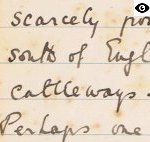 scarcely
south of Engl
cattleways.
Perhaps one